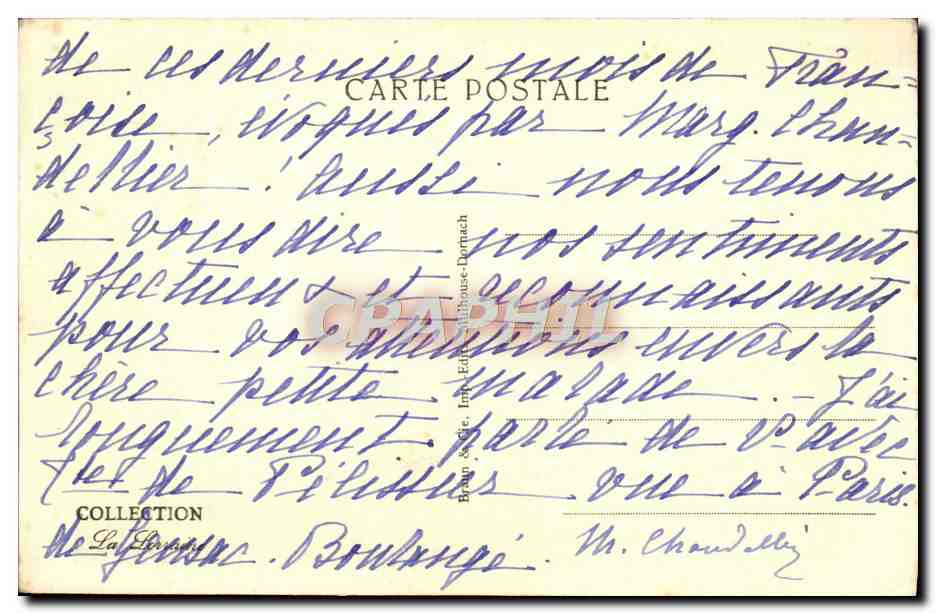 de ces derniers mois de Fran-
CARTE POSTALE
çoise, évoqués par Marg. Chan-
dellier ! aussi nous tenons
à vous dire nos sentiments
affectueux et reconnaissants
CPAPHIL
pour vos attentions envers la
chère petite malade. - J'ai
longuement parlé de vs avec
de Pélissier vue à Paris.
Braun & Cie, Imp.-Edit., Mulhouse-Dornach
COLLECTION
La Lorraine
de Boulangé. M.